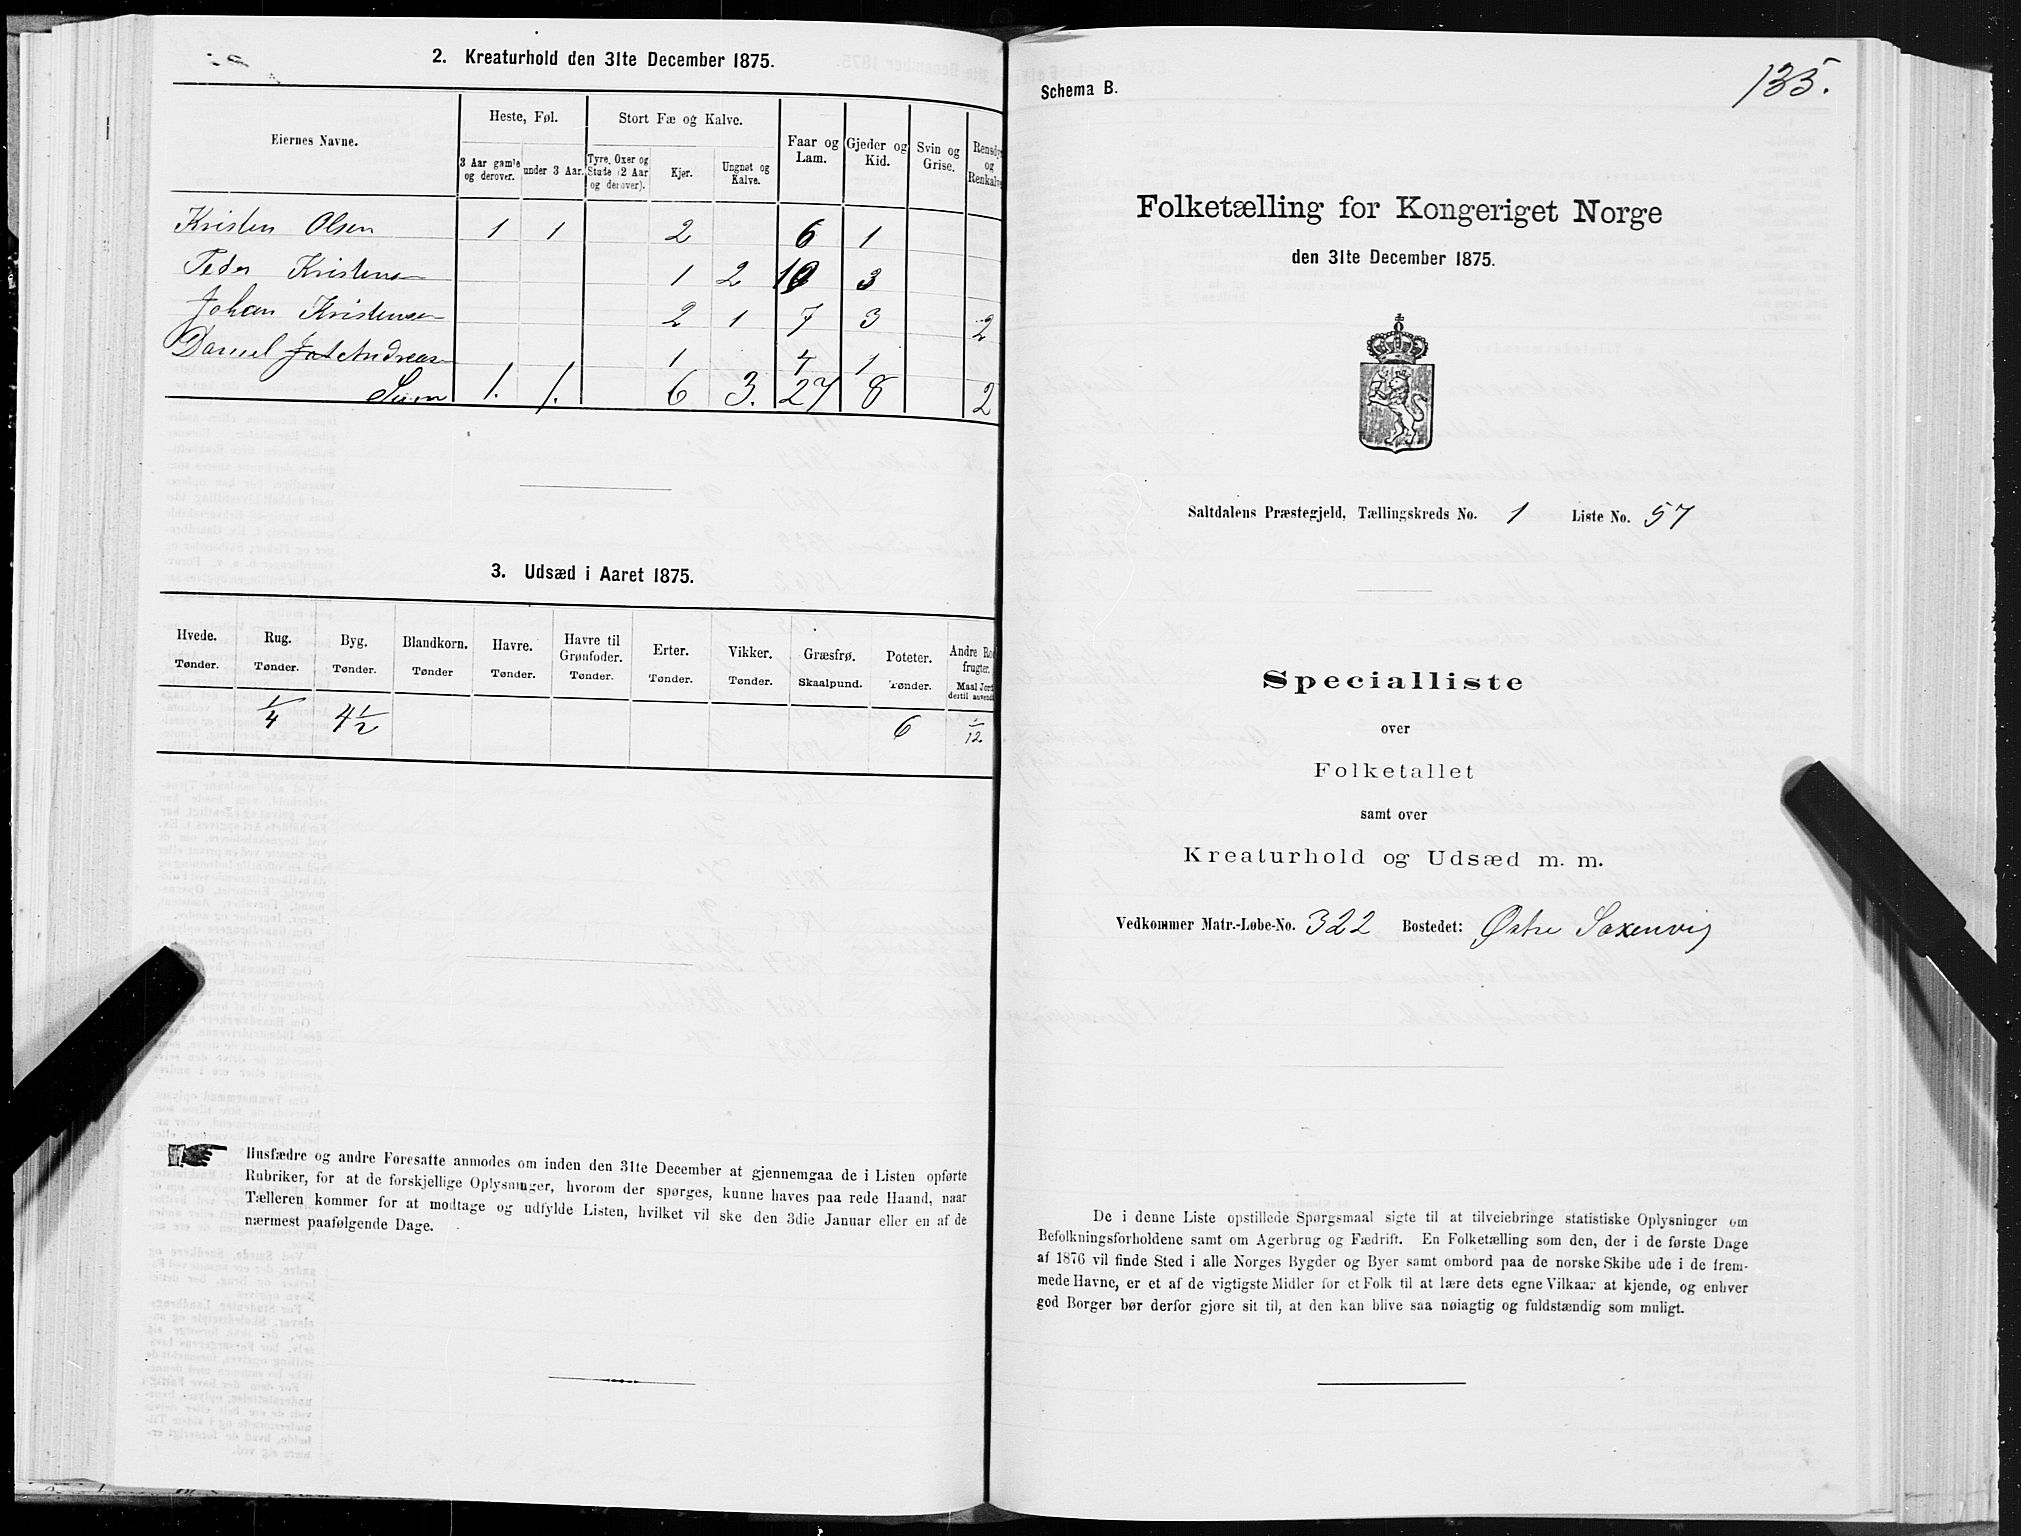 2. Kreaturhold den 31te December 1875.
Eiernes Navne.
Heste, Føl.
Stort Fæ og Kalve.
Faar og Lam.
Gjeder og Kid.
Svin og Grise.
Rensdyr og Renkalve
3 Aar gamle og derover.
under 3 Aar.
Tyre, Oxer og Stude (2 Aar og derover).
Kjør.
Ungnøt og Kalve.
Kristen Olsen 1 1 2 6 1
Peder Kristens 1 2 10 3
Johan Kristensen 2 1 7 3 2
Daniel Andreas 1 4 1
Sum 1. 1. 6 3. 27 8 2
3. Udsæd i Aaret 1875.
Hvede. Rug. Byg. Blandkorn. Havre. Havre til Grønfoder. Erter. Vikker. Græsfrø. Poteter. Andre Rod frugter.
Tønder. Tønder. Tønder. Tønder Tønder. Tønder. Tønder. Tønder. Skaalpund. Tønder. Maal Jord dertil anvendt
1/4 4 1/2 6 1/12
Husfædre og andre Foresatte anmodes om inden den 31te December at gjennemgaa de i Listen opførte
Rubriker, for at de forskjellige Oplysninger, hvorom der spørges, kunne haves paa rede Haand, naar
Tælleren kommer for at modtage og udfylde Listen, hvilket vil ske den 3die Januar eller en af de
nærmest paafølgende Dage.
135.
Schema B.
Folketælling for Kongeriget Norge
den 31te December 1875.
Saltdalens Præstegjeld, Tællingskreds No. 1 Liste No. 57
Specialliste
over
Folketallet
samt over
Kreaturhold og Udsæd m. m.
Vedkommer Matr.-Løbe-No. 322 Bostedet: Østre Saxenvig
De i denne Liste opstillede Spørgsmaal sigte til at tilveiebringe statistiske Oplysninger om
Befolkningsforholdene samt om Agerbrug og Fædrift. En Folketælling som den, der i de første Dage
af 1876 vil finde Sted i alle Norges Bygder og Byer samt ombord paa de norske Skibe ude i de frem-
mede Havne, er et af de vigtigste Midler for et Folk til at lære dets egne Vilkaar at kjende, og enhver
god Borger bør derfor gjøre sit til, at den kan blive saa nøiagtig og fuldstændig som muligt.